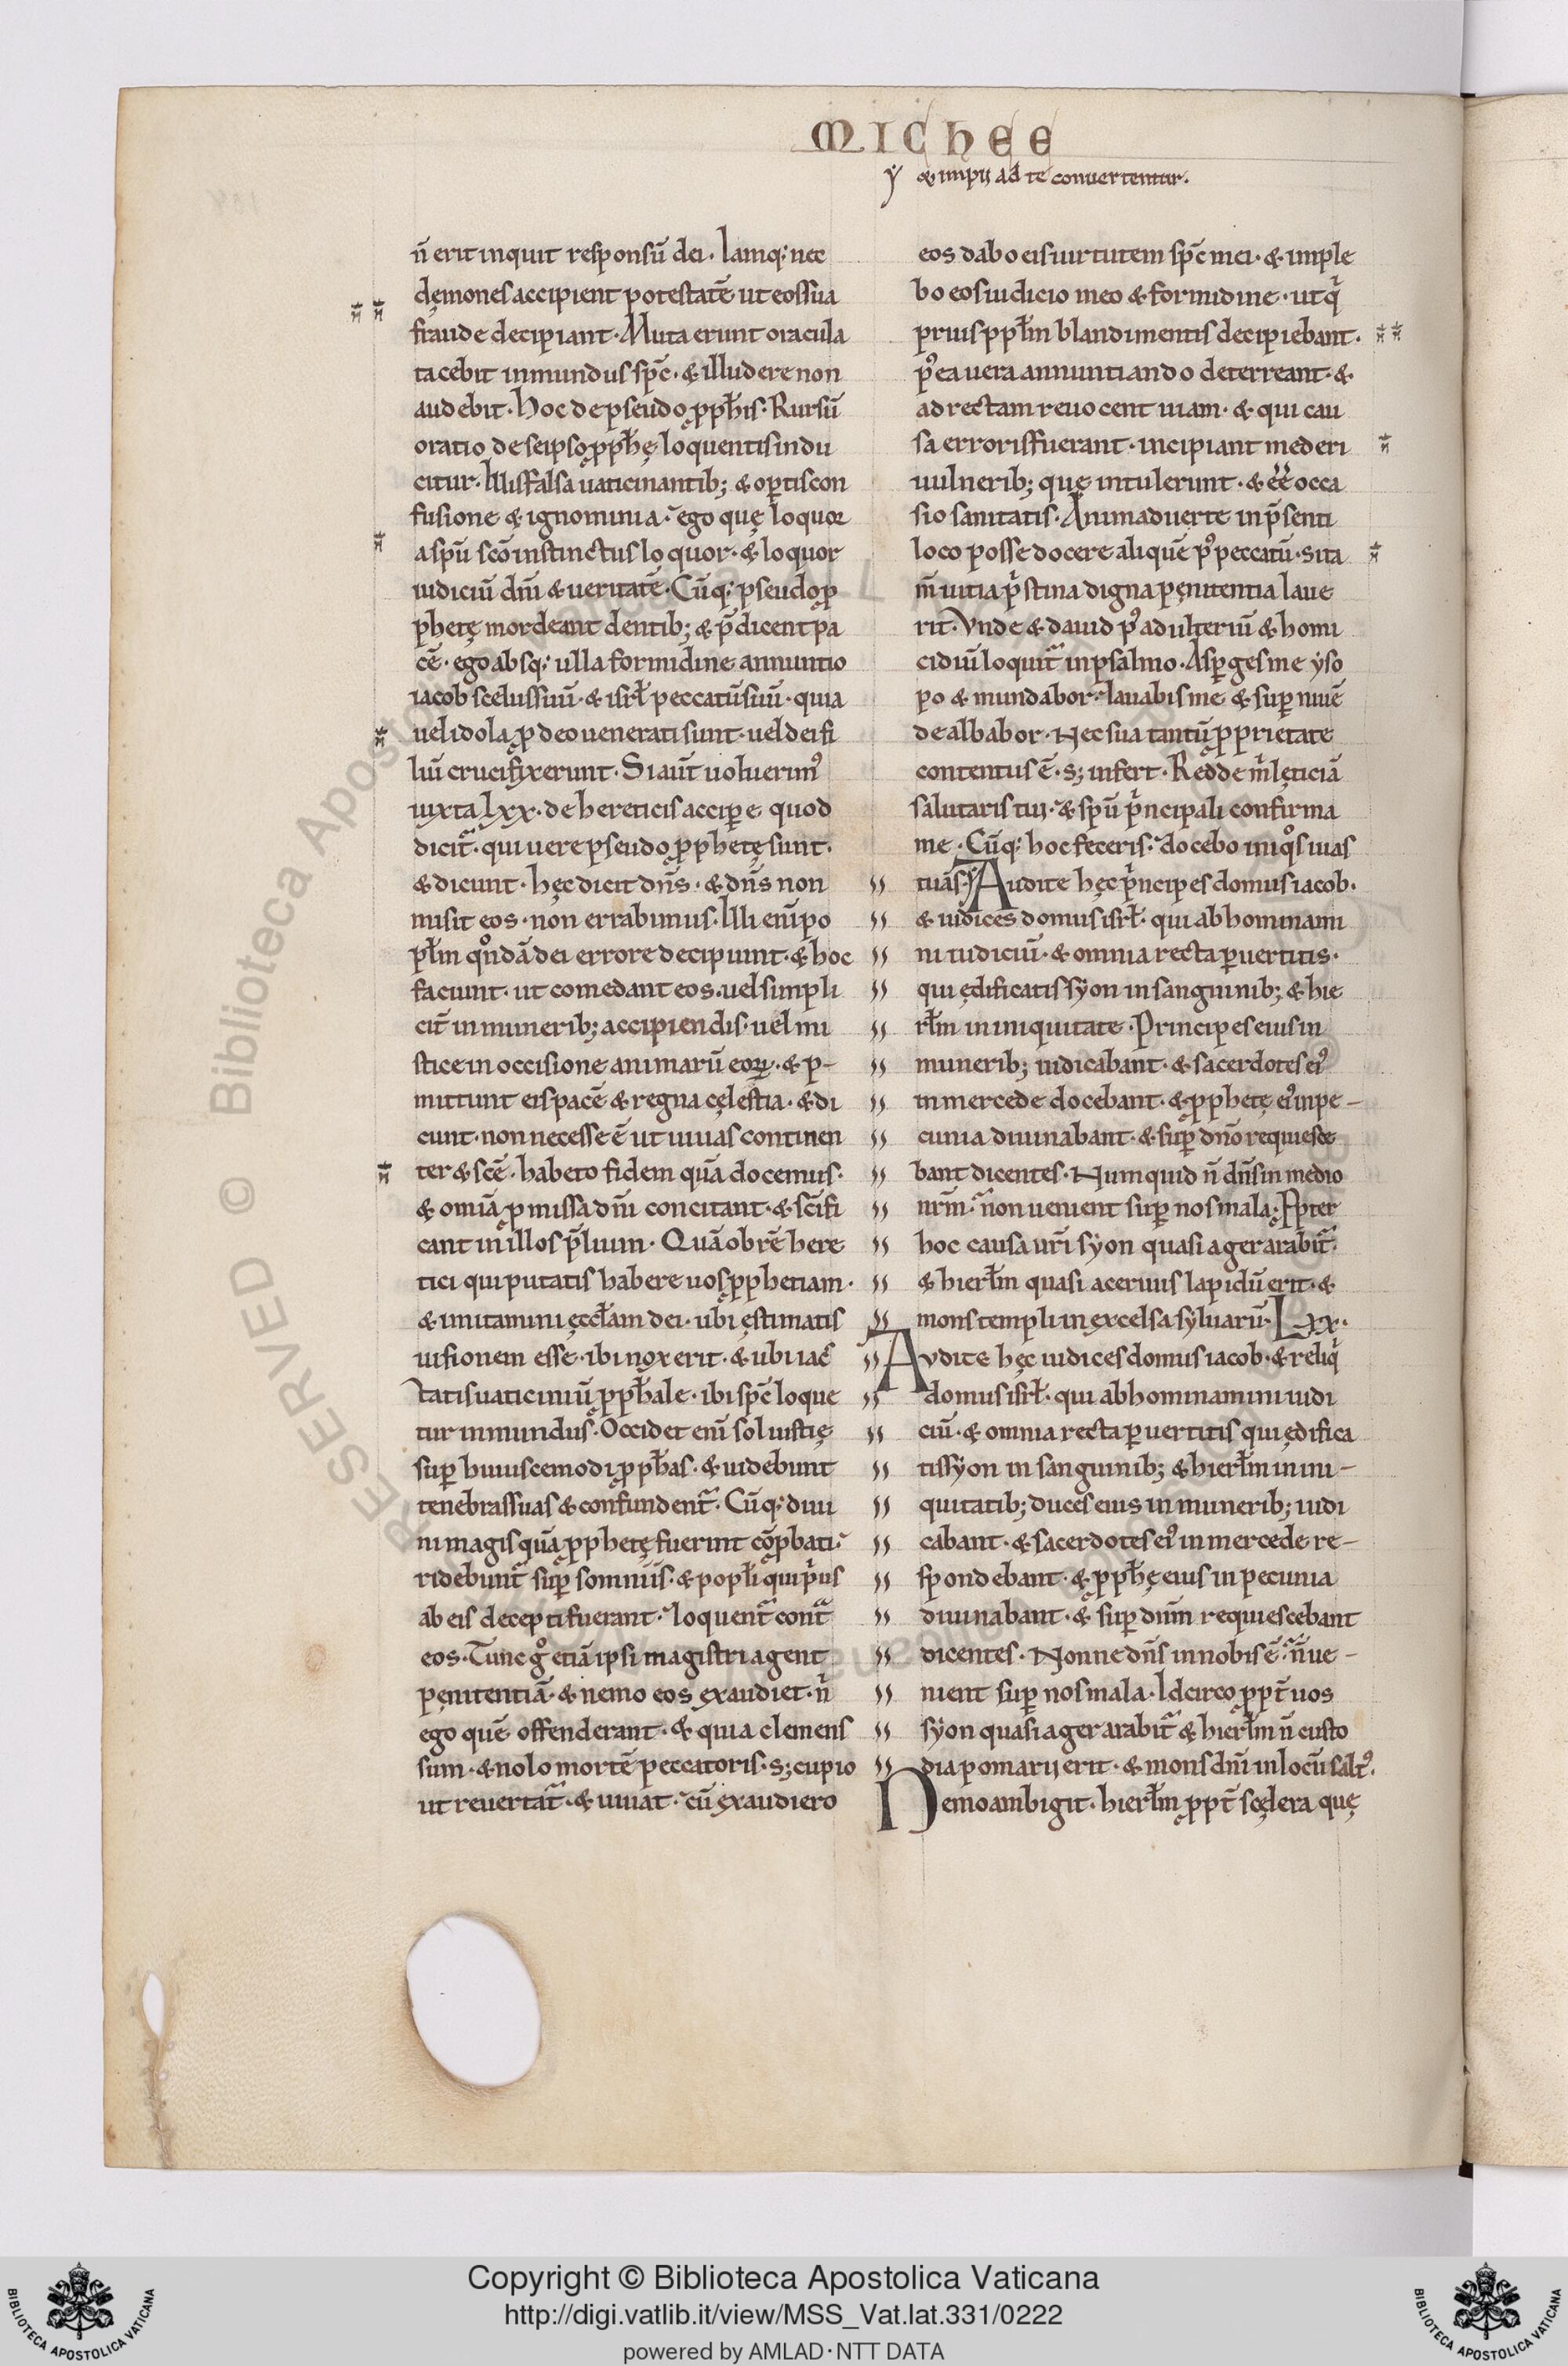 MICHEE
ẏ & impij ad te conuertentur.
n̄ erit inquit responsū dei. Iamq; nec
dęmones accipient potestatē ut eos sua
fraude decipiant. Muta erunt oracula
tacebit inmundus spc̄. & illudere non
audebit. Hoc de pseudo ꝓph̄is. Rursū
oratio de se ipso ꝓph̄ę loquentis indu
citur. Illis falsa uaticinantib; & optis con
fusione & ignominia. ego quę loquor
a spū sc̄o instinctus loquor. & loquor
iudiciū dn̄i & ueritatē. Cūq; pseudo ꝓ
phetę mordeant dentib; & p̄dicent pa
cē. ego absq; ulla formidine annuntio
iacob scelus suū. & isrł peccatū suū. quia
uel idola ꝓ deo uenerati sunt. uel dei fi
liū crucifixerunt. Si aut̄ uoluerim᾽
iuxta lxx. de hereticis accipe quod
dicit᾽. qui uere pseudo ꝓphetę sunt.
& dicunt. hęc dicit dn̄s. & dn̄s non
misit eos. non errabimus. Illi eni̅ po
płm qͦndā dei errore decipiunt. & hoc
faciunt. ut comedant eos. uel simpli
cit̄ in munerib; accipiendis. uel mi
stice in occisione animarū eoꝝ. & p-
mittunt eis pacē & regna cęlestia. & di
cunt. non necesse ē ut uiuas continen
ter & sc̄ē. habeto fidem quā docemus.
& om̄ia ꝓmissa dn̄i concitant. & sc̄ifi
cant in illos p̄lium. Quā ob rē here
tici qui putatis habere uos ꝓphetiam.
& imitamini ęccłam dei. ubi ęstimatis
uisionem esse. ibi nox erit. & ubi iac̄
tatis uaticiniū ꝓph̄ale. ibi spc̄ loque
tur inmundus. Occidet eni̅ sol iustię
suꝑ huiuscemodi ꝓph̄as. & uidebunt
tenebras suas & confundent᾽. Cūq; diui
ni magis quā ꝓphetę fuerint cōꝓbati.
ridebunt᾽ suꝑ somniis. & popłi qui pͥus
ab eis decepti fuerant. loquent᾽ cont᾽
eos. Tunc gͦ etiā ipsi magistri agent
pęnitentiā. & nemo eos exaudiet. nͥ
ego quē offenderant. & quia clemens
sum. & nolo mortē peccatoris. s; cupio
ut reuertat᾽. & uiuat. cū exaudiero
eos dabo eis uirtutem spc̄ mei. & imple
bo eos iudicio meo & formidine. ut qͥ
prius ppłm blandimentis decipiebant.
p᾽ea uera annuntiando deterreant. &
ad rectam reuocent uiam. & qui cau
sa erroris fuerant. incipiant mederi
uulnerib; quę intulerunt. & ee̅ occa
sio sanitatis. Animaduerte in p̄senti
loco posse docere aliquē p᾽ peccatū. si ta
m̄ uitia pͥstina digna pęnitentia laue
rit. Vnde & dauid p᾽ adulteriū & homi
cidiū loquit᾽ in psalmo. Asꝑges me yso
po & mundabor. lauabis me & suꝑ niuē
dealbabor. Nec sua tantū ꝓprietate
contentus ē. s; infert. Redde mͥ lęticiā
salutaris tui. & spū pͥncipali confirma
me. Cūq; hoc feceris. docebo iniqͦs uias
tuas. ẏ Audite hęc pͥncipes domus iacob.
& iudices domus isrł. qui abhominami
ni iudiciū. & omnia recta ꝑuertitis.
qui ędificatis syon in sanguinib; & hie
rłm in iniquitate. Principes eius in
munerib; iudicabant. & sacerdotes ei᾽
in mercede docebant. & ꝓphetę ei᾽ in pe-
cunia diuinabant. & suꝑ dn̄o requiesce
bant dicentes. Numquid n̄ dn̄s in medio
nr̄m. non uenient suꝑ nos mala. Ꝓpter
hoc causa ur̄i syon quasi ager arabit᾽.
& hierłm quasi aceruus lapidū erit. &
mons templi in excelsa syluarū. Lxx.
Avdite hęc iudices domus iacob. & reliqͥ
domus isrł. qui abhominamini iudi
ciū. & omnia recta ꝑuertitis qui ędifica
tis syon in sanguinib; & hierłm in ini-
quitatib; duces eius in munerib; iudi
cabant. & sacerdotes ei᾽ in mercede re-
spondebant. & ꝓph̄ę eius in pecunia
diuinabant. & suꝑ dn̄m requiescebant
dicentes. Nonne dn̄s in nobis ē. n̄ ue-
nient suꝑ nos mala. Idcirco ꝓpt̄ uos
syon quasi ager arabit᾽ & hierłm n̄ custo
dia pomarii erit. & mons dn̄i in locū salt᾽.
Nemo ambigit. hierłm ꝓpt̄ scęlera quę
© Biblioteca Apostolica Vaticana
RESERVED
Copyright © Biblioteca Apostolica Vaticana
http://digi.vatlib.it/view/MSS_Vat.lat.331/0222
powered by AMLAD·NTT DATA
BIBLIOTECA APOSTOLICA VATICANA
BIBLIOTECA APOSTOLICA VATICANA